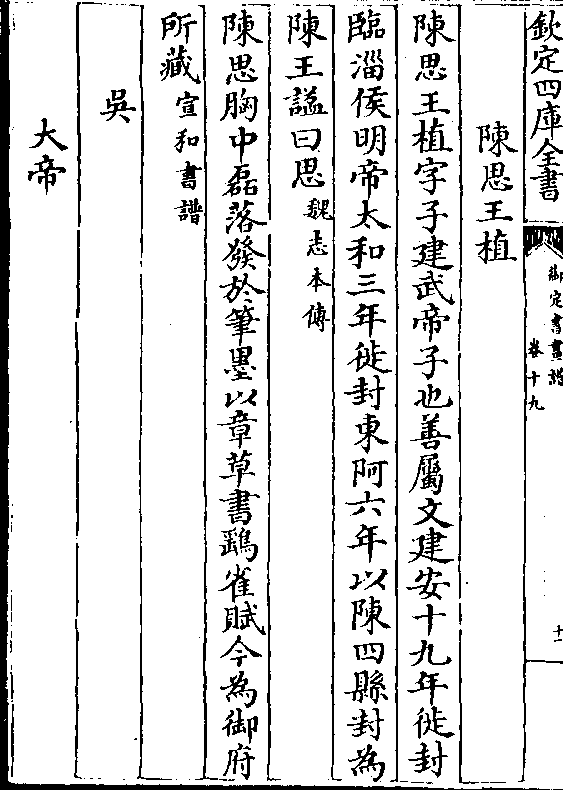 欽定四庫全書
御定書畫譜
卷十九
十一
陳思王植
陳思王植字子建武帝子也善屬文建安十九年徙封
臨淄侯明帝太和三年徙封東阿六年以陳四縣封為
陳王謚曰思魏志本傳
陳思胸中磊落發於筆墨以章草書鷂雀賦今為御府
所藏宣和書譜
吳
大帝